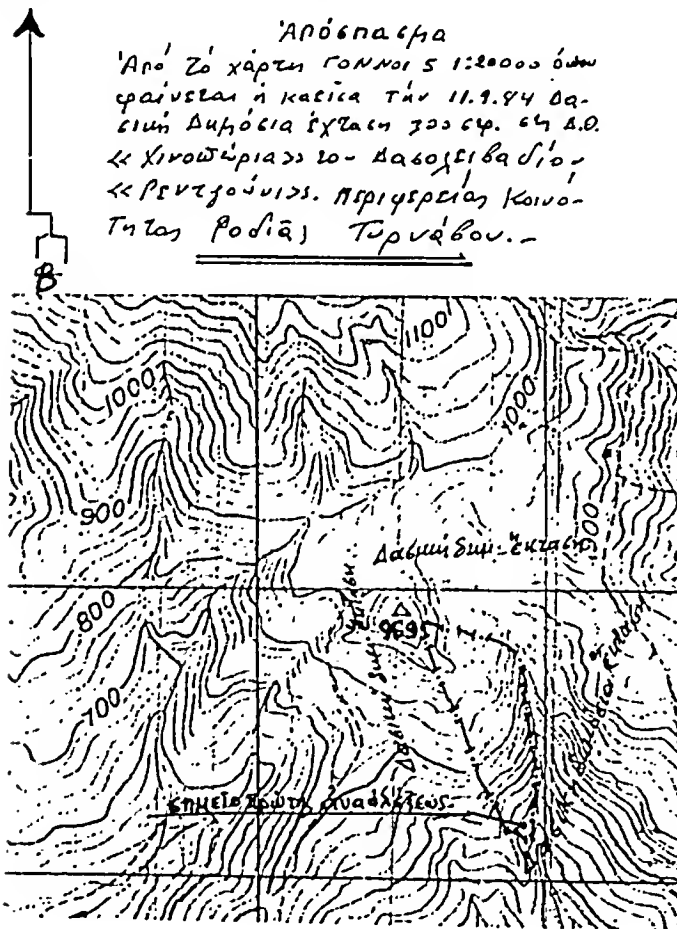 Ἀπόσπασμα
Ἀπό τό χάρτη ΓΟΝΝΟΙ 5 1:20000 ὅπου
φαίνεται ἡ καεῖσα τήν 11.9.84 Δα-
σική Δημόσια ἔκταση 300 στρ. στη Δ.Θ.
<< Χινοπώρια>> του Δασολειβαδίου
<<Ρεντζούνι>>. Περιφερείας Κοινό-
τητας Ροδιᾶς Τυρνάβου.-
Β
1100
1000
1000
900
900
Δασική δημ. ἔκταση
800
Δασική δημ. ἔκταση
969
Δασική Δημόσια ἔκταση
700
σημεῖο πρώτης ἀναφλέξεως